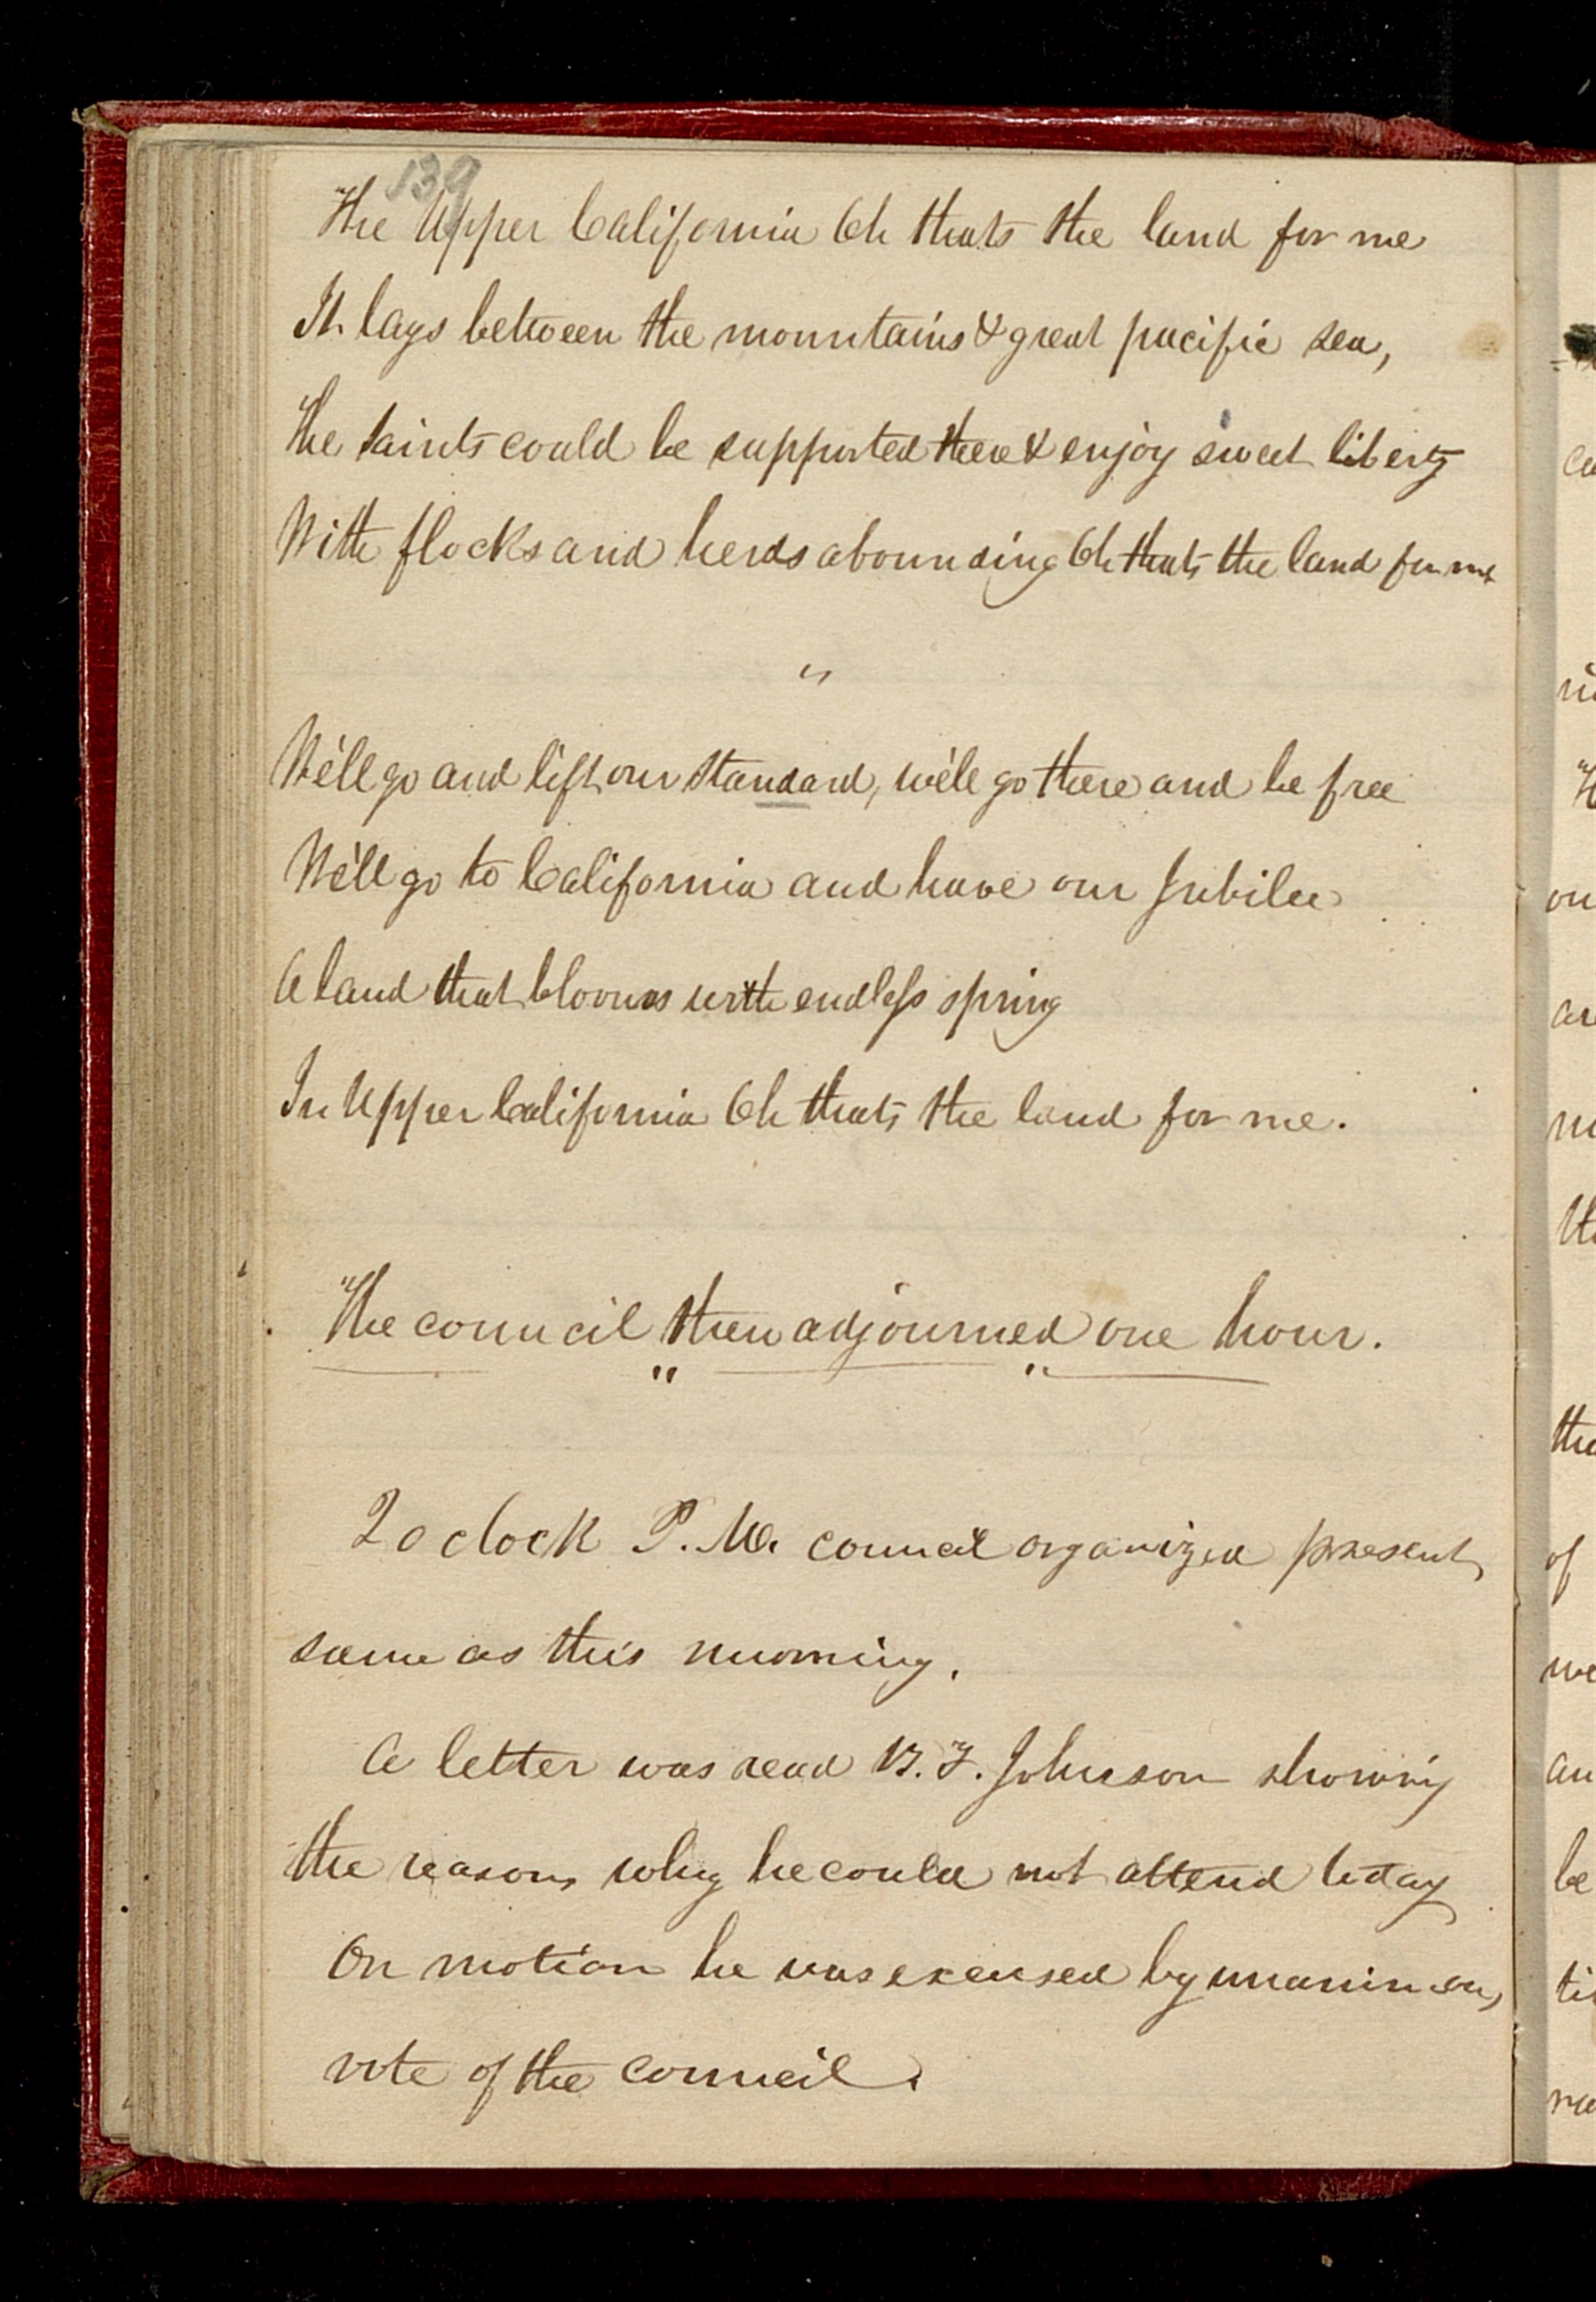 139
The Upper California Oh thats the land for me
It lays between the mountains & great pacific sea,
The saints could be supported there & enjoy sweet liberty
With flocks and herds abounding Oh thats the land for me
"
We'll go and lift our standard, we'll go there and be free
We'll go to California and have our Jubilee
A land that blooms with endless spring
In Upper California Oh thats the land for me.
The council then adjourned one hour.
" "
2 o clock P.M. council organized present
same as this morning.
A letter was read B. F. Johnson showing
the reasons why he could not attend today
On motion he was excused by unanimous
vote of the council.